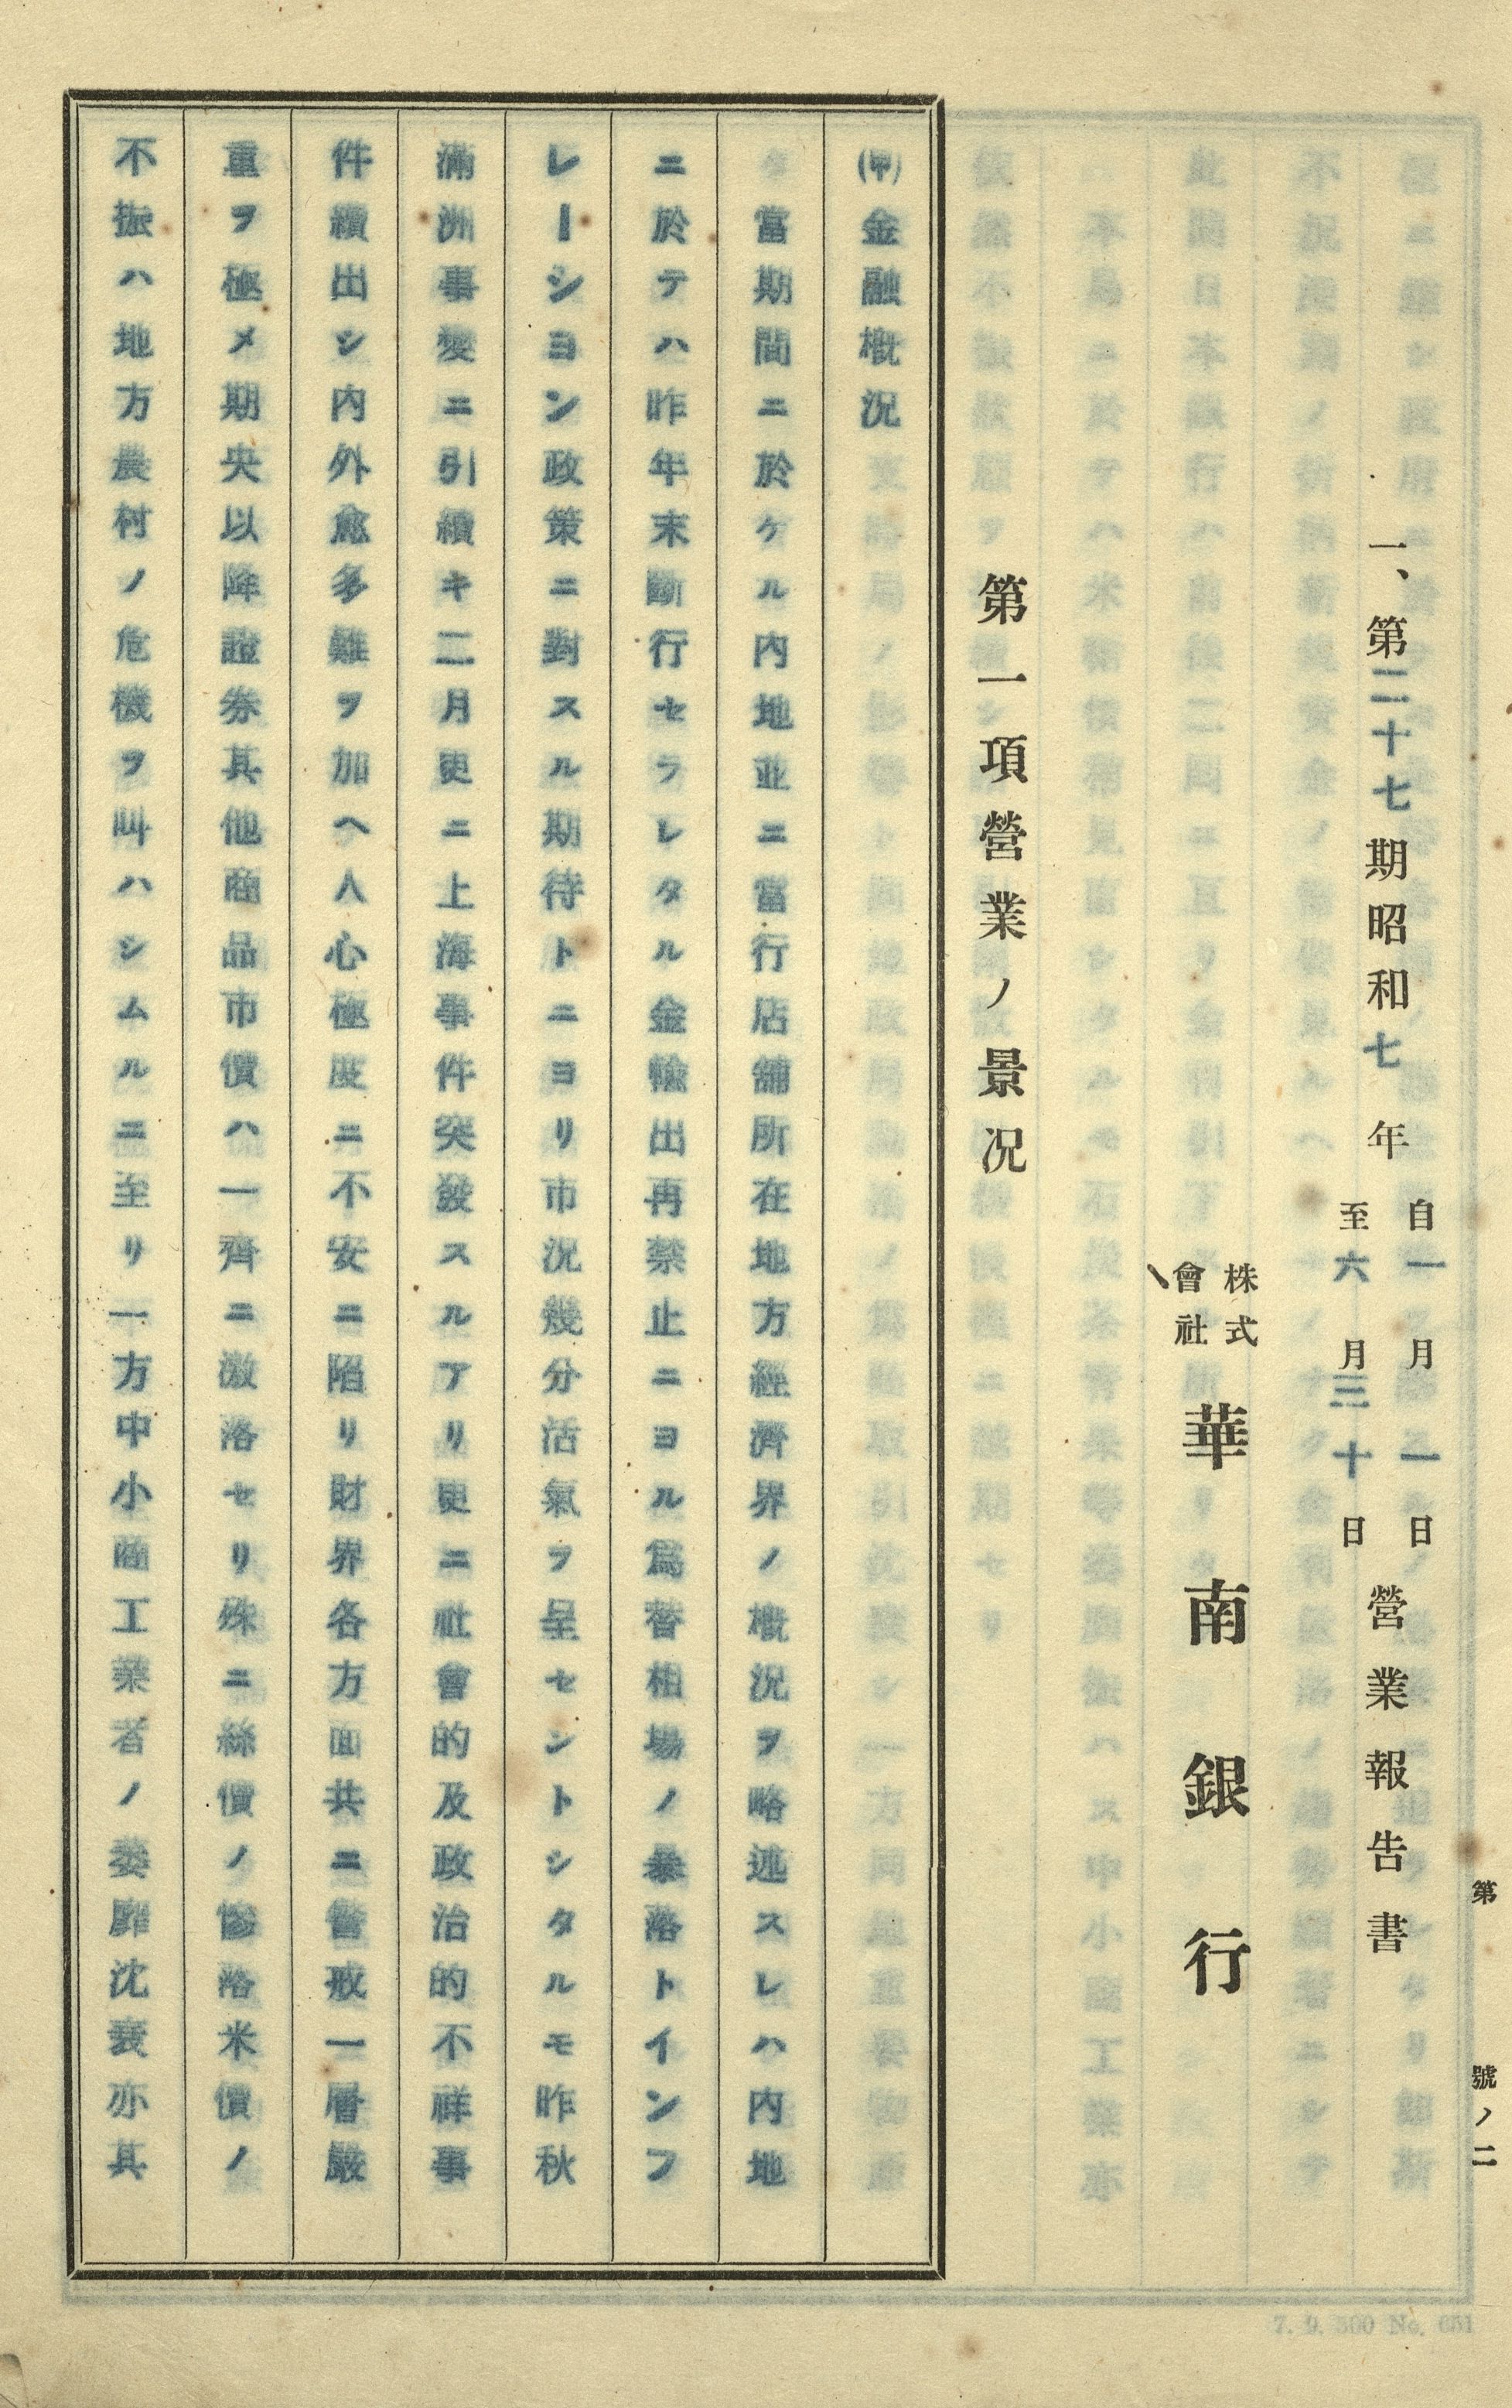 第　號ノ二
一、第二十七期昭和七年自一月一日至六月三十日營業報告書
株式會社華南銀行
第一項營業ノ景况
(甲)金融概況
當期間ニ於ケル內地並ニ當行店舖所在地方經濟界ノ概況ヲ略述スレハ內地
ニ於テハ昨年末斷行セラレタル金輸出再禁止ニヨル爲替相場ノ暴落トインフ
レーシヨン政策ニ對スル期待トニヨリ市況幾分活氣ヲ呈セントシタルモ昨秋
滿洲事變ニ引續キ二月更ニ上海事件突發スルアリ更ニ社會的及政治的不祥事
件續出シ內外愈多難ヲ加ヘ人心極度ニ不安ニ陷リ財界各方面共ニ警戒一層嚴
重ヲ極メ期央以降證券其他商品市價ハ一齊ニ激落セリ殊ニ絲價ノ慘落米價ノ
不振ハ地方農村ノ危機ヲ叫ハシムルニ至リ一方中小商工業者ノ萎靡沈衰亦其
7. 9. 500 No. 651